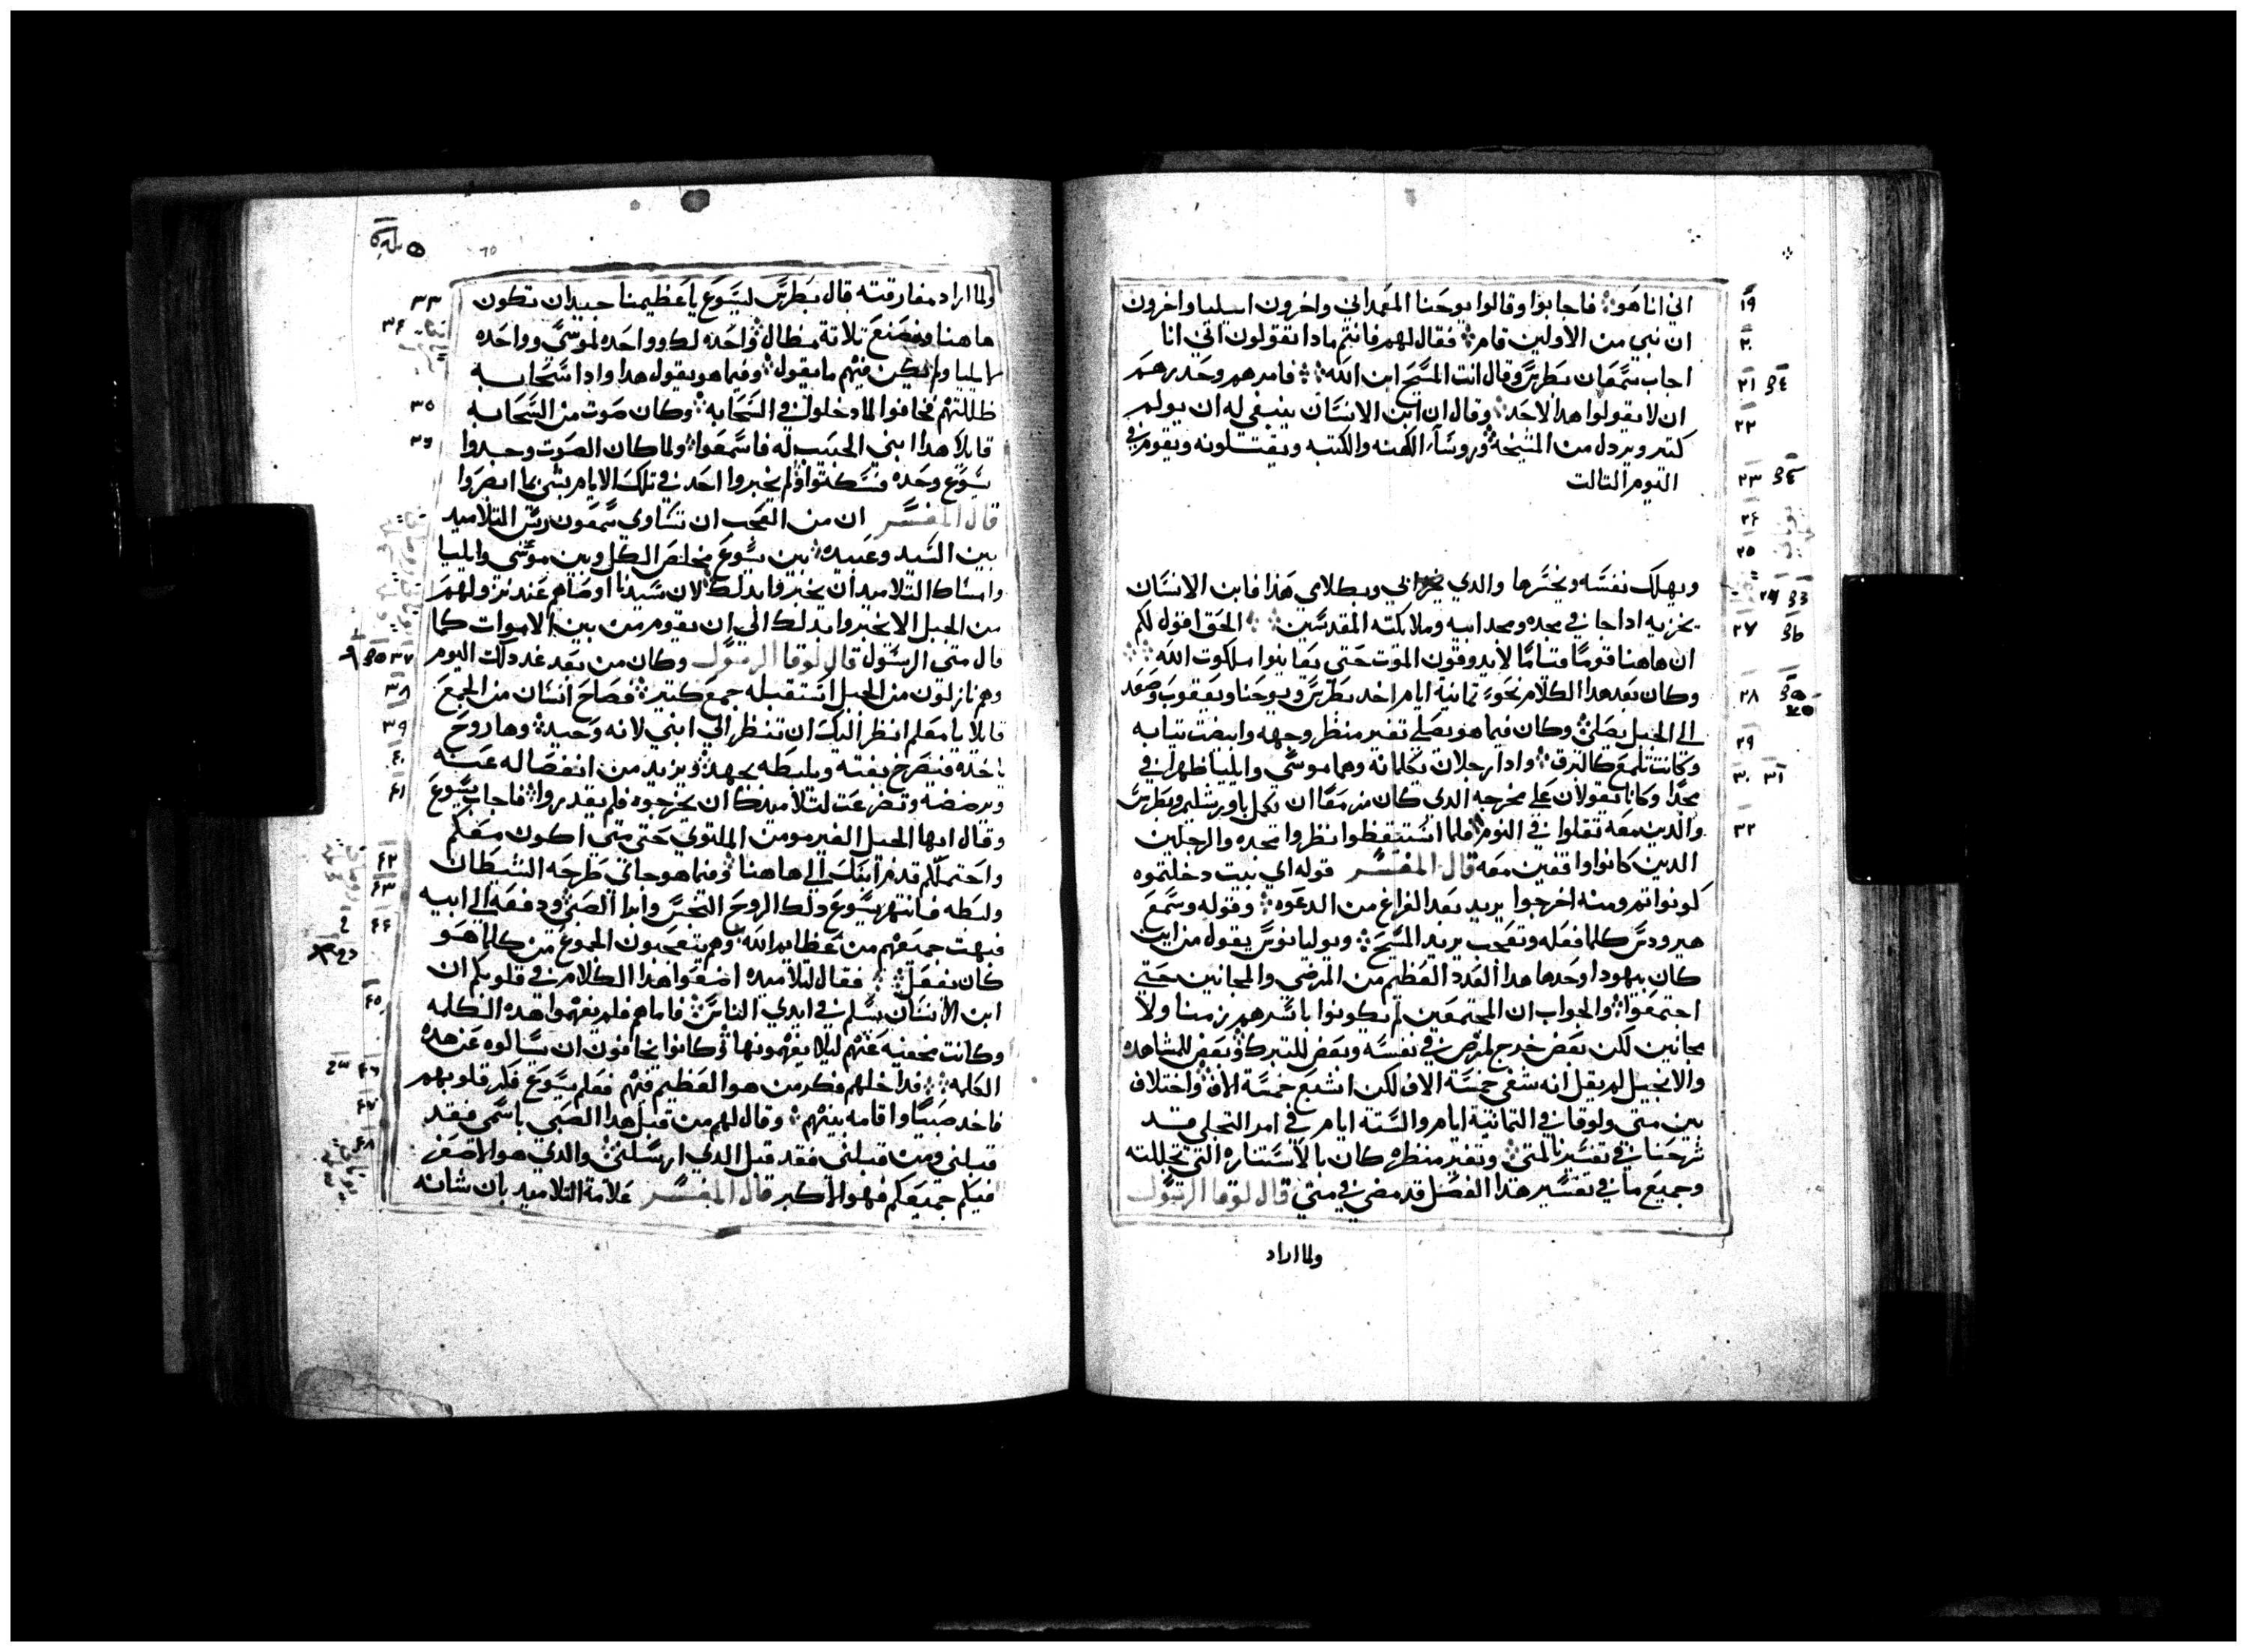 اني انا هو فاجابوا وقالوا يوحنا المعمداني واخرون ايليا واخرون
ان نبي من الاولين قام فقال لهم فانتم مادا تقولون اني انا
اجاب سمعان بطرس وقال انت المسيح ابن الله فامرهم وحدرهم
ان لا يقولوا هدا لاحد وقال ان ابن الانسان ينبغي له ان يولم
كتير ويردل من المشيخة وروساء الكهنه والكتبه ويقتلونه ويقوم في
اليوم التالت
ويهلك نفسه ويخسرها والدي يخزا بي وبكلامي هدا فابن الانسان
يخزيه ادا جا في مجده ومجد ابيه وملايكته المقدسين الحق اقول لكم
ان هاهنا قوما قياما لا يدوقون الموت حتى يعاينوا ملكوت الله
وكان بعد هدا الكلام نحو تمانية ايام اخد بطرس ويوحنا ويعقوب وصعد
الى الجبل يصلي وكان فيما هو يصلي تغير منظر وجهه وابيضت تيابه
وكانت تلمع كالبرق وادا رجلان يكلمانه وهما موسى وايليا ظهرا في
مجد وكانا يقولان على مخرجه الدي كان مزمعا ان يكمل باورشليم وبطرس
والدين معه تقلوا في النوم فلما استيقظوا نظروا مجده والرجلين
الدين كانوا واقفين معه قال المفسر قوله اي بيت دخلتموه
كونوا تم ومنه اخرجوا يريد بعد الفراغ من الدعوه وقوله وسمع
هيرودس كلما فعله وتعجب يريد المسيح ويوليانوس يقول من اين
كان بيهودا وحدها هدا العدد العظيم من المرضى والمجانين حتى
اجتمعوا والجواب ان المجتمعين لم يكونوا باسرهم زمنا ولا
مجانين لكن بعض خرج لمرض في نفسه وبعض للتبرك وبعض للمشاهده
والانجيل لم يقل انه شفى خمسة الاف لكن اشبع خمسة الاف واختلاف
بين متى ولوقا في التمانية ايام والستة ايام في امر التجلي قد
شرحنا في تفسيرنا لمتى وتغير منظره كان بالاستناره التي تجللته
وجميع ما في تفسير هدا الفصل قد مضى في متى قال لوقا الرسول
ولما اراد
ولما اراد مفارقته قال بطرس ليسوع يا عظيمنا جيد ان نكون
هاهنا ونصنع تلاتة مظال واحده لك وواحده لموسى وواحده
لايليا ولم يكن فيهم ما يقول وفيما هو يقول هدا وادا سحابه
ظللتهم فخافوا لما دخلوا في السحابه وكان صوت من السحابه
قايلا هدا ابني الحبيب له فاسمعوا ولما كان الصوت وجدوا
يسوع وحده فسكتوا ولم يخبروا احد في تلك الايام بشي بما ابصروا
قال المفسر ان من العجب ان تساوي سمعون ريس التلاميد
بين السيد وعبيده بين يسوع مخلص الكل وبين موسى وايليا
وامساك التلاميد ان يخبروا بدلك لان سيدنا اوصاهم عند نزولهم
من الجبل الا يخبروا بدلك الى ان يقوم من بين الاموات كما
قال متى الرسول قال لوقا الرسول وكان من بعد غد دلك اليوم
وهم نازلون من الجبل استقبله جمع كتير فصاح انسان من الجمع
قايلا يا معلم انظر اليك ان تنظر الى ابني لانه وحيد وها روح
ياخده فيصرخ بغته ويلبطه بجهد ويزيد من انفصاله عنه
ويرضضه وتضرعت لتلاميدك ان يخرجوه فلم يقدروا فاجاب يسوع
وقال ايها الجيل الغير مومن الملتوي حتى متى اكون معكم
واحتملكم قدم ابنك الى هاهنا وفيما هو جاي طرحه الشيطان
ولبطه فانتهر يسوع دلك الروح النجس وابرا الصبي ودفعه الى ابيه
فبهت جميعهم من عظايم الله وهم يتعجبون الجموع من كلما هو
كان يفعل فقال لتلاميده اضعوا هدا الكلام في قلوبكم ان
ابن الانسان يسلم في ايدي الناس فاما هم فلم يفهموا هده الكلمه
وكانت مخفيه عنهم ليلا يفهمونها وكانوا يخافون ان يسالوه عن هده
الكلمه فداخلهم فكر من هو العظيم فيهم فعلم يسوع فكر قلوبهم
فاخد صبيا واقامه بينهم وقال لهم من قبل هدا الصبي باسمي فقد
قبلني ومن قبلني فقد قبل الدي ارسلني والدي هو الاصغر
فيكم جميعكم فهو الاكبر قال المفسر علامة التلاميد بان شانه